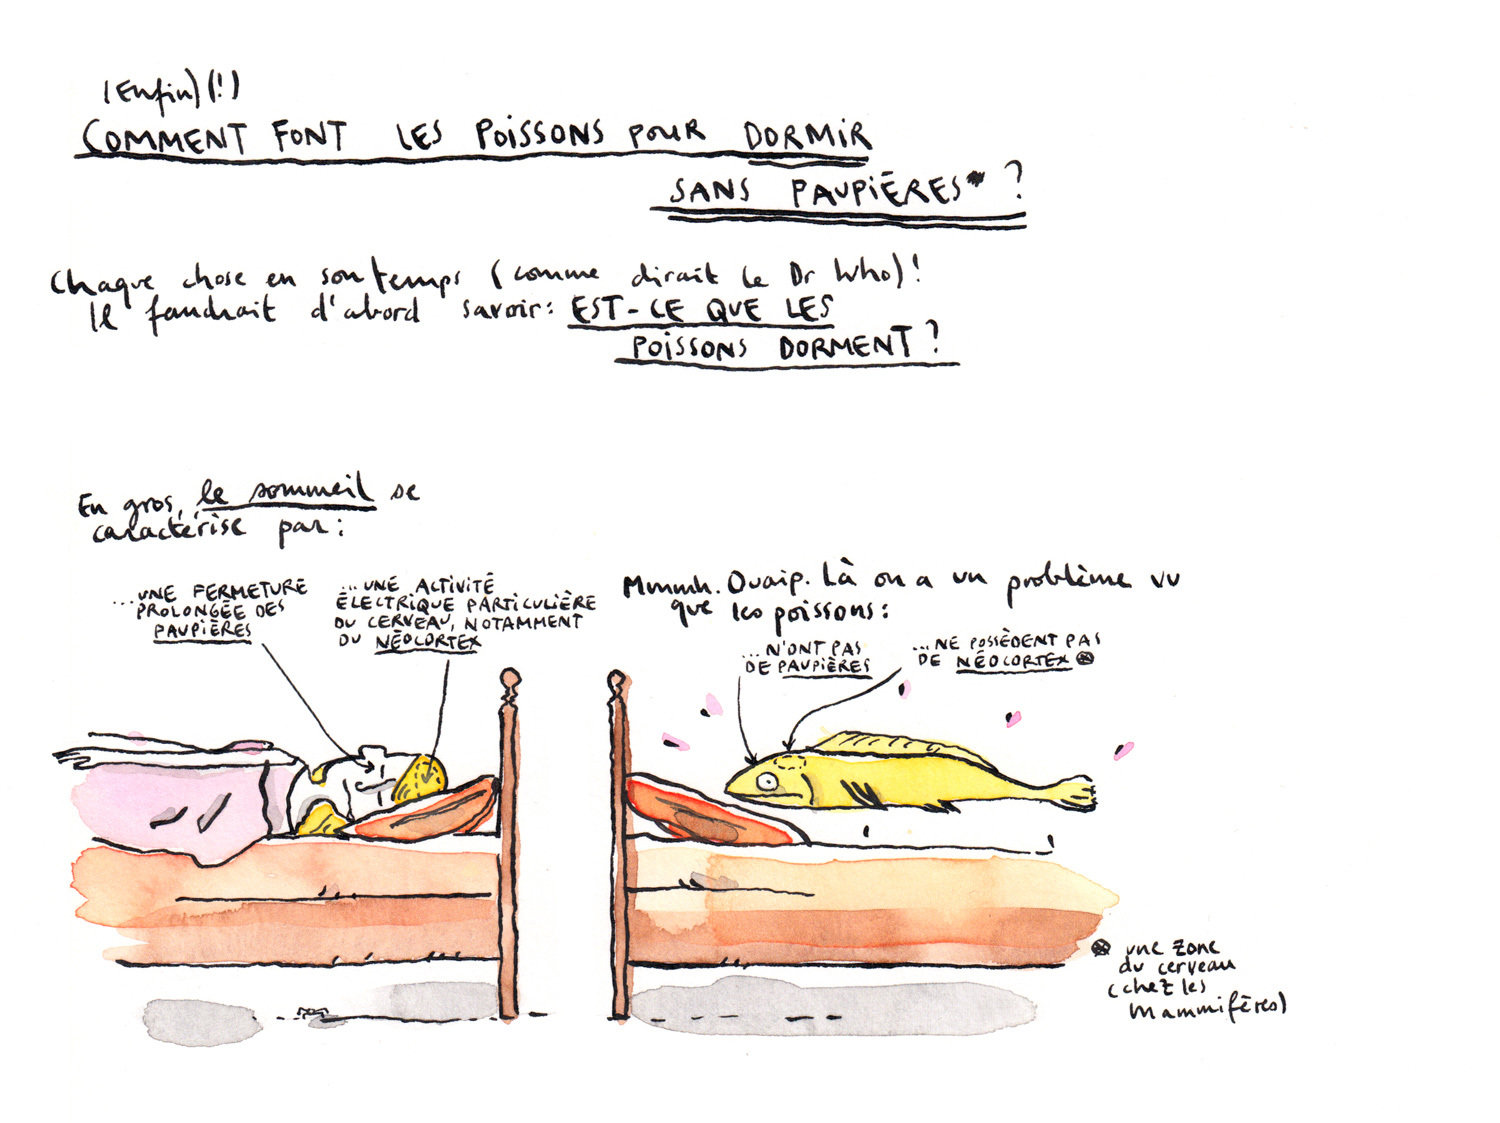 (Enfin)(!)
COMMENT FONT LES POISSONS POUR DORMIR
SANS PAUPIÈRES* ?
Chaque chose en son temps (comme dirait le Dr Who)!
Il faudrait d'abord savoir: EST-CE QUE LES
POISSONS DORMENT ?
En gros, le sommeil se
caractérise par:
...UNE FERMETURE
PROLONGÉE DES
PAUPIÈRES
...UNE ACTIVITÉ
ÉLECTRIQUE PARTICULIÈRE
DU CERVEAU, NOTAMMENT
DU NÉOCORTEX
Mmmmh. Ouaip. Là on a un problème vu
que les poissons:
...N'ONT PAS
DE PAUPIÈRES
...NE POSSÈDENT PAS
DE NÉOCORTEX ⊛
⊛ une zone
du cerveau
(chez les
Mammifères)